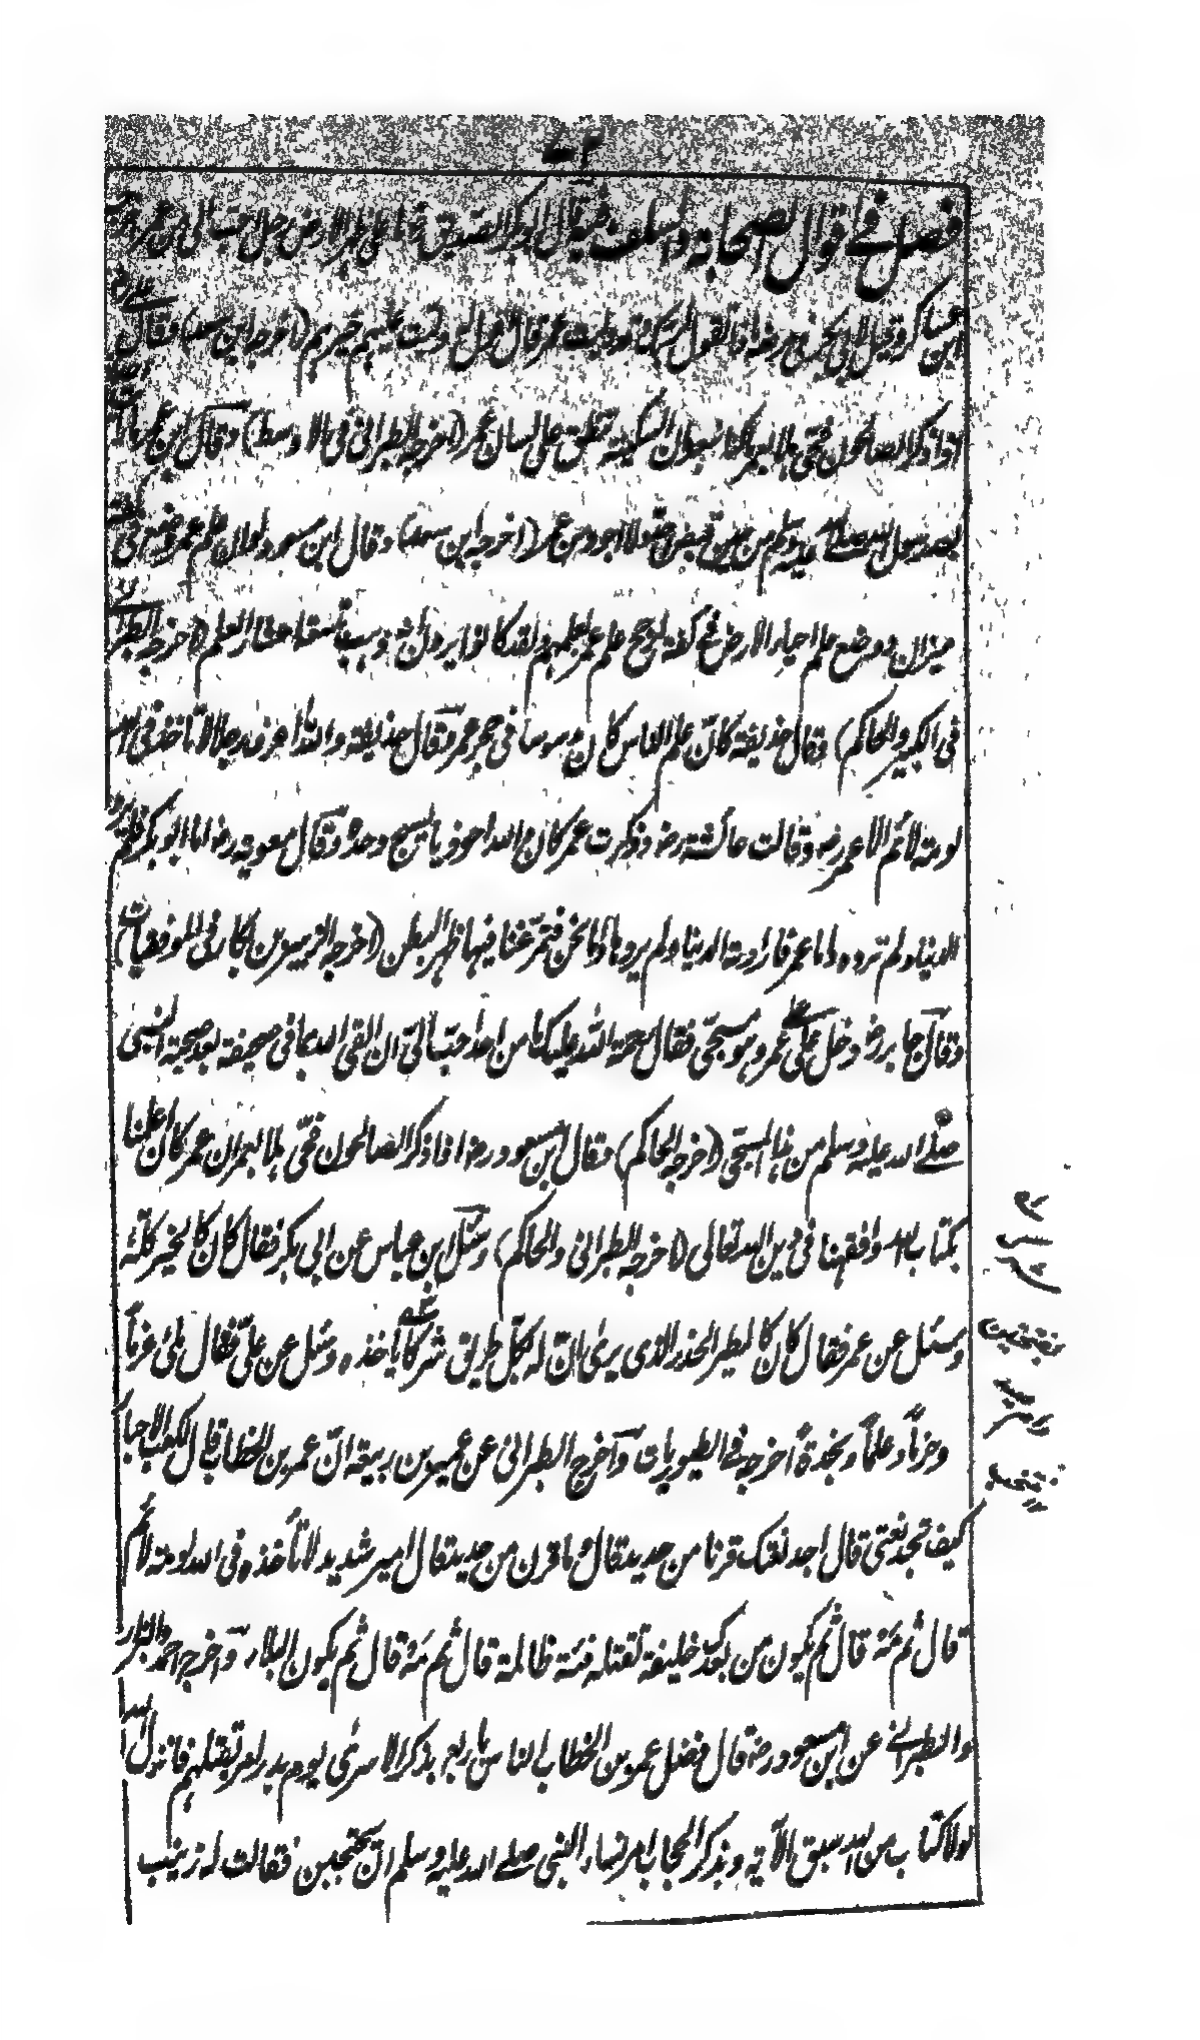 فصل في اقوال الصحابة والسلف فيه قال ابو بكر الصديق رض ما على ظهر الارض رجل احب الي من عمر اخرجه
ابن عساكر وقيل لابي بكر في مرضه ماذا تقول لربك وقد وليت عمر قال اقول له وليت عليهم خيرهم (اخرجه ابن سعد) وقال علي رض
اذا ذكر الصالحون فحي هلا بعمر ما كنا نبعد ان السكينة تنطق على لسان عمر (اخرجه الطبراني في الاوسط) وقال ابن عمر ما رأيت احدا
بعد رسول الله صلى الله عليه وسلم من حين قبض احد ولا اجود من عمر (اخرجه ابن سعد) وقال ابن مسعود لو ان علم عمر وضع في كفة
ميزان ووضع علم احياء الارض في كفة لرجح علم عمر بعلمهم ولقد كانوا يرون انه ذهب بتسعة اعشار العلم (اخرجه الطبراني
في الكبير والحاكم) وقال حذيفة كان علم الناس كان مدسوسا في حجر عمر وقال حذيفة والله ما اعرف رجلا لا تأخذه في الله
لومة لائم الا عمر رض وقالت عائشة رض وذكرت عمر كان والله احوذيا نسيج وحده وقال معوية رض اما ابو بكر فلم يرد
الدنيا ولم ترده واما عمر فارادته الدنيا ولم يردها واما نحن فتمرغنا فيها ظهر البطن (اخرجه الزبير بن بكار في الموفقيات)
وقال جابر رض دخل علي على عمر وهو مسجى فقال رحمة الله عليك ما من احد احب الي ان القى الله بما في صحيفته بعد صحبة النبي
صلى الله عليه وسلم من هذا المسجى (اخرجه الحاكم) وقال ابن مسعود رض اذا ذكر الصالحون فحي هلا بعمر ان عمر كان اعلمنا
بكتاب الله وافقهنا في دين الله تعالى (اخرجه الطبراني والحاكم) وسئل ابن عباس عن ابي بكر فقال كان كالخير كله
وسئل عن عمر فقال كان كالطير الحذر الذي يرى ان له بكل طريق شركا يأخذه وسئل عن علي فقال ملئ عزما
وحزما وعلما ونجدة اخرجه في الطيوريات وأخرج الطبراني عن عمير بن ربيعة ان عمر بن الخطاب قال لكعب الاحبار
كيف تجد نعتي قال اجد نعتك قرنا من حديد قال وما قرن من حديد قال امير شديد لا تأخذه في الله لومة لائم
قال ثم مه قال ثم يكون من بعدك خليفة تقتله فئة ظالمة قال ثم مه قال ثم يكون البلاء وأخرج احمد والبزار
والطبراني عن ابن مسعود رض قال فضل عمر بن الخطاب الناس باربع بذكر الاسرى يوم بدر امر بقتلهم فانزل الله
لولا كتاب من الله سبق الآية وبذكر الحجاب امر نساء النبي صلى الله عليه وسلم ان يحتجبن فقالت له زينب
بفتحتين